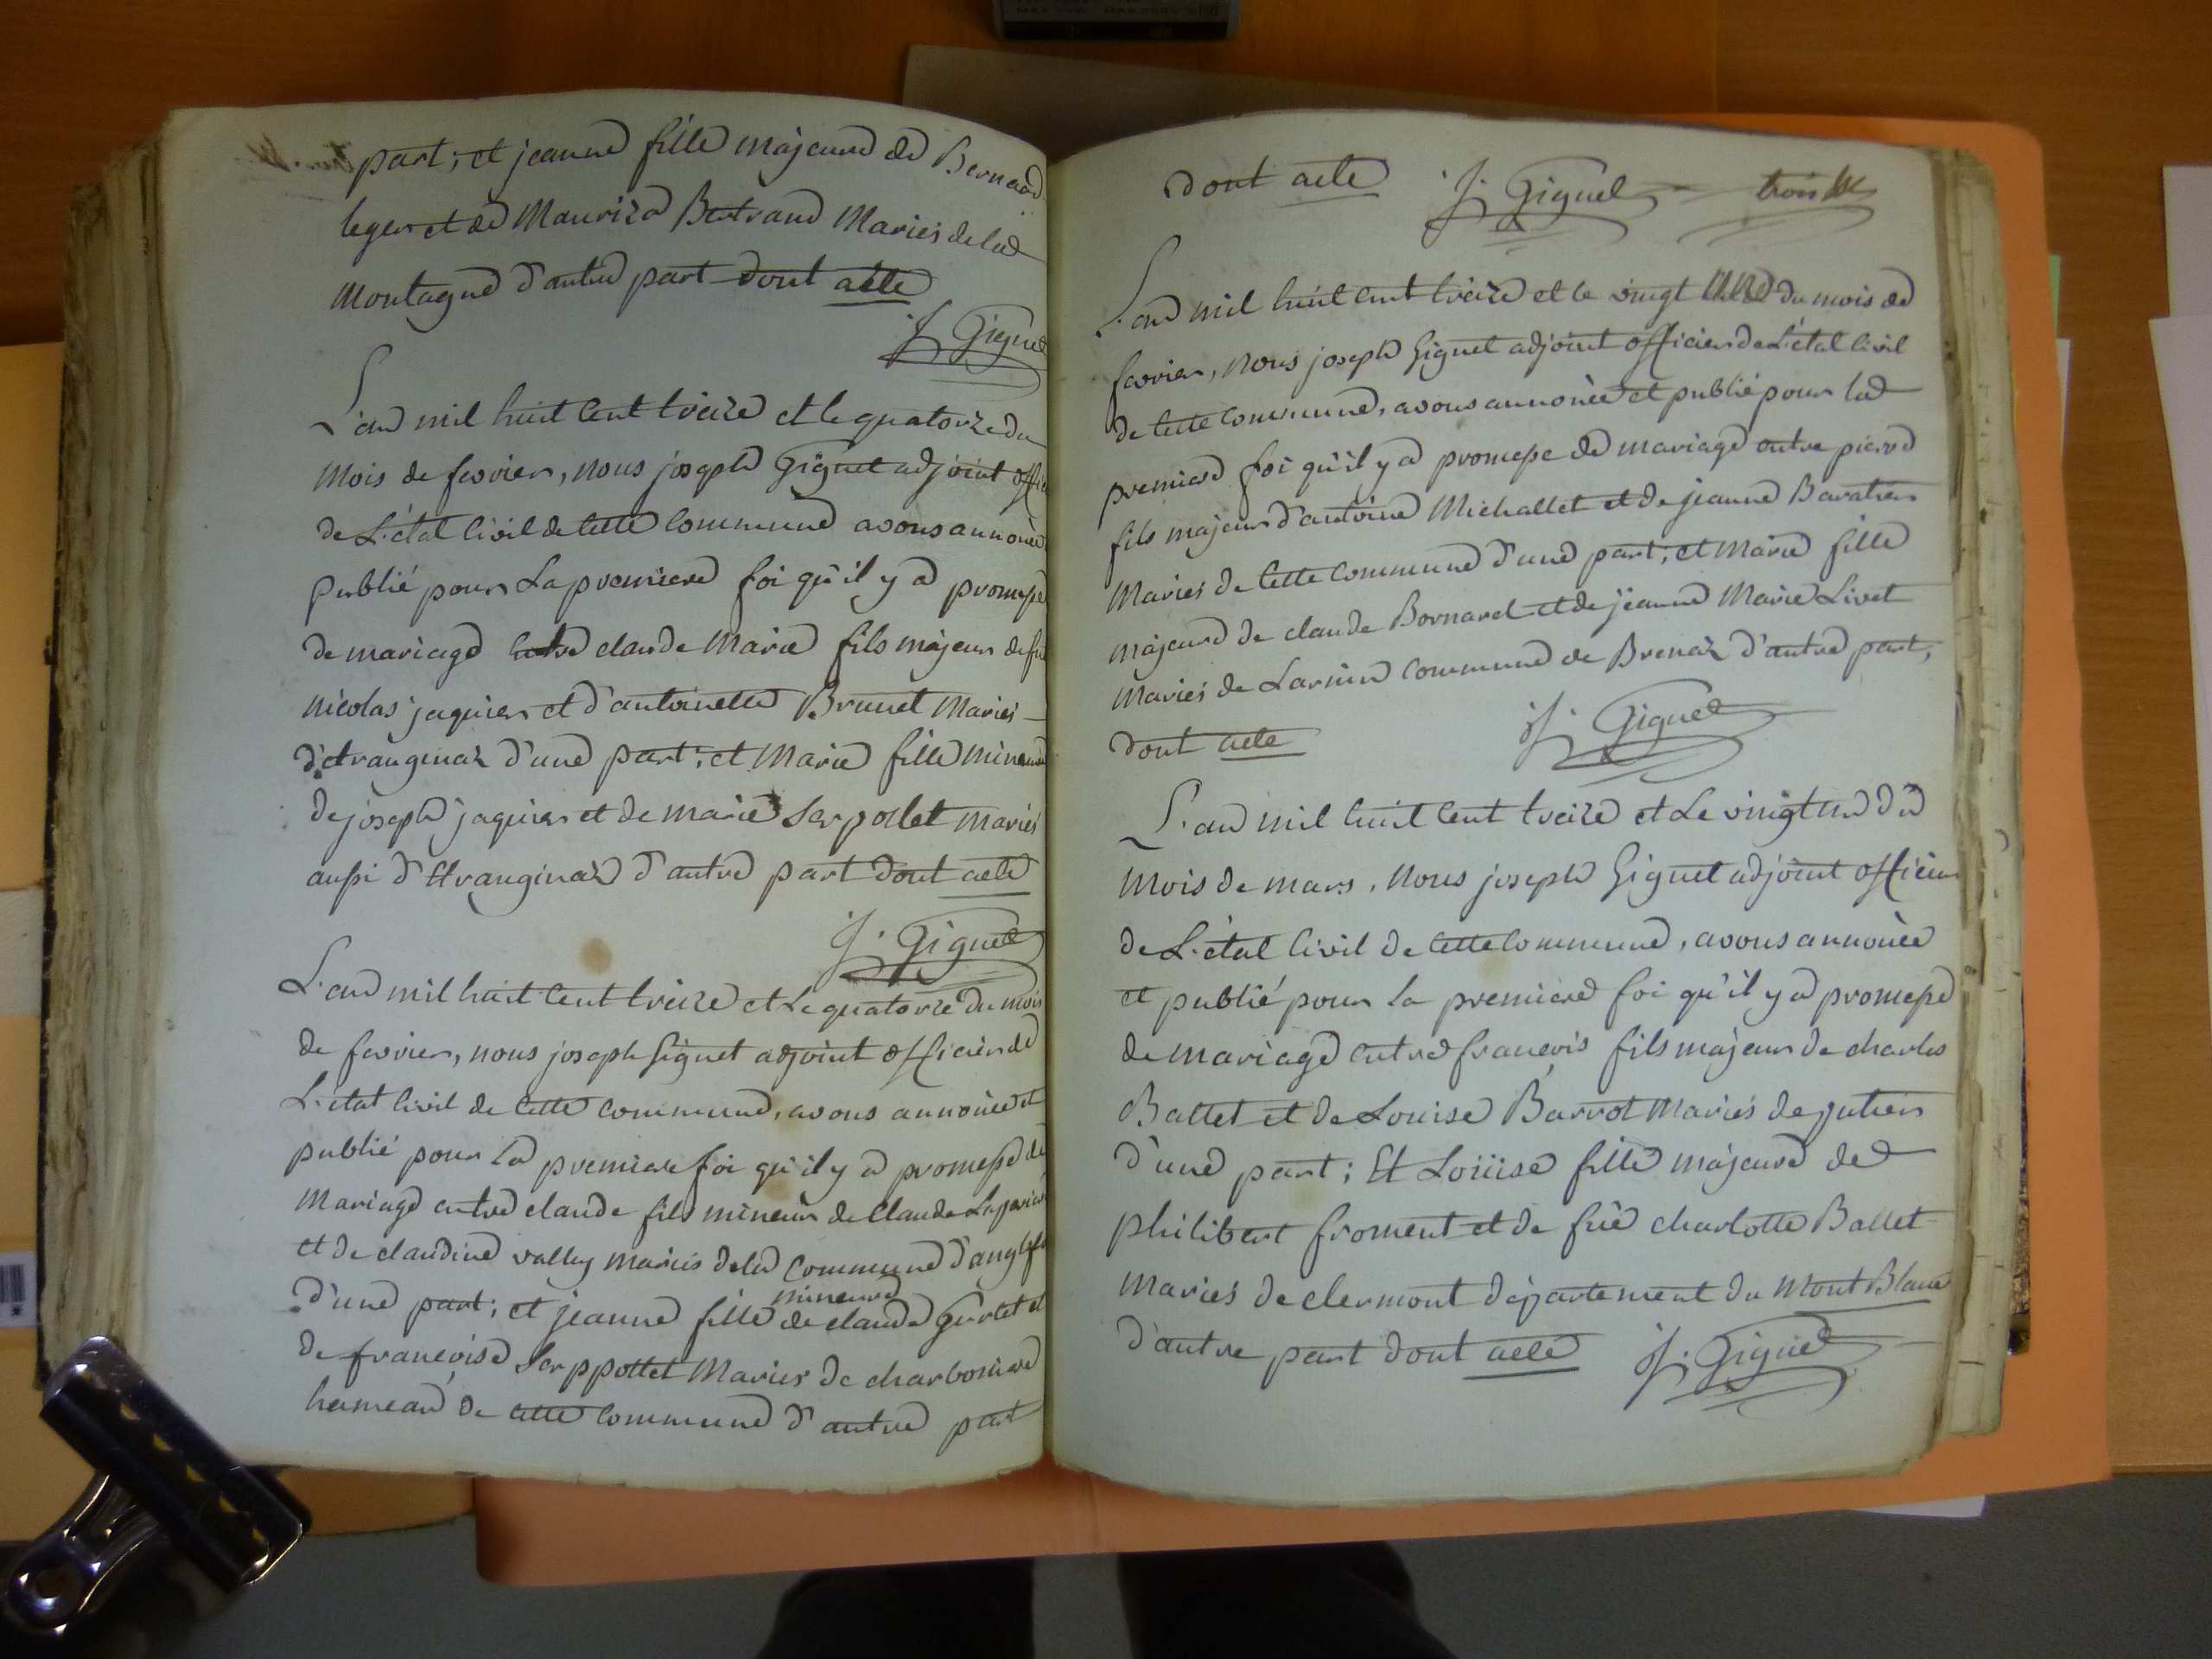 part; et jeanne fille majeure de Bernard
leger et de Mauriza Bertrand Mariés de la
Montagne d'autre part dont acte
J. Giguet
L'an mil huit cent treize et le quatorze du
Mois de fevrier, nous joseph Giguet adjoint offic
de L'état civil de cette commune avons annoncé
publié pour La premiere foi qu'il y a promesse
de mariage entre claude Marie fils majeur de feu
nicolas jaquier et d'antoinette Brunet Mariés
d'etranginaz d'une part; et Marie fille mineure
de joseph jaquier et de marie Serpollet mariés
aussi d'Etranginaz d'autre part dont acte
J. Giguet
L'an mil huit cent treize et Le quatorze du mois
de fevrier, nous joseph Giguet adjoint officier de
L'état civil de cette commune, avons annoncé et
publié pour la premiere foi qu'il y a promesse de
Mariage entre claude fils mineur de Claude
et de claudine valley mariés de la commune d'anglefo
mineure
d'une part; et jeanne fille de claude Gurtet et
de françoise Serppollet Mariés de charboniere
hameau de cette commune d'autre part
dont acte J. Giguet trois
L'an mil huit cent treize et le vingt du mois de
fevrier, nous joseph Giguet adjoint officier de L'état civil
de cette commune, avons annoncé et publié pour la
premiere foi qu'il y a promesse de mariage entre pierre
fils majeur d'antoine Michallet et de jeanne Bavatier
Mariés de cette commune d'une part; et Marie fille
majeure de claude Bornarel et de jeanne Marie Livet
Mariés de Larnin commune de Brenaz d'autre part,
dont acte J. Giguet
L'an mil huit cent treize et Le vingt un du
Mois de mars, Nous joseph Giguet adjoint officier
de L'état civil de cette commune, avons annoncé
et publié pour la premiere foi qu'il y a promesse
de mariage entre françois fils majeur de charles
Ballet et de Louise Barrot Mariés de jutien
d'une part; Et Loüise fille majeure de
philibert froment et de feue charlotte Ballet
Mariés de clermont département du Mont Blanc
d'autre part dont acte J. Giguet